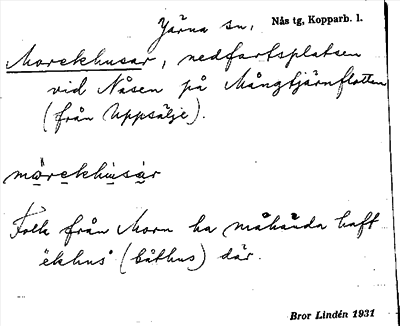 Järna sn,
Nås tg, Kopparb. l.
Morekhusar, nedfartsplatsen
vid Nåsen på Mångtjärnflotten
(från Uppsälje).
mo̤rekhu̲sa̲r
Folk från Morn ha måhända haft
ekhus (båthus) där.
Bror Lindén 1931